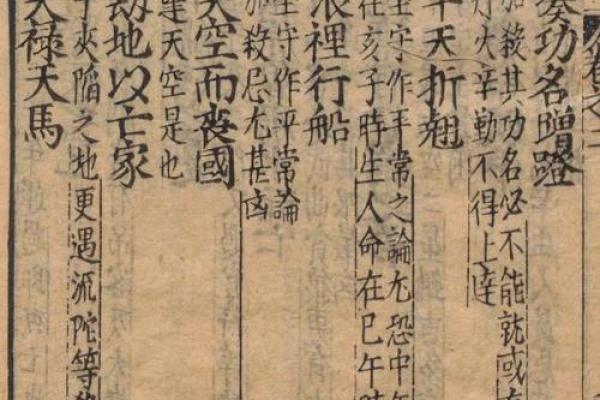 卷之
奏功名蹭蹬
加殺其功名必不能就或
灯火辛勤不得上達
天折翅
守作平常之論尤恐中年
在亥子時生人命在巳午時
浪裡行船
守作平常論
加殺忌尤甚凶
天空而喪國
逢天空是也
劫地以亡家
夾陷之地更遇流陀等
天祿天馬